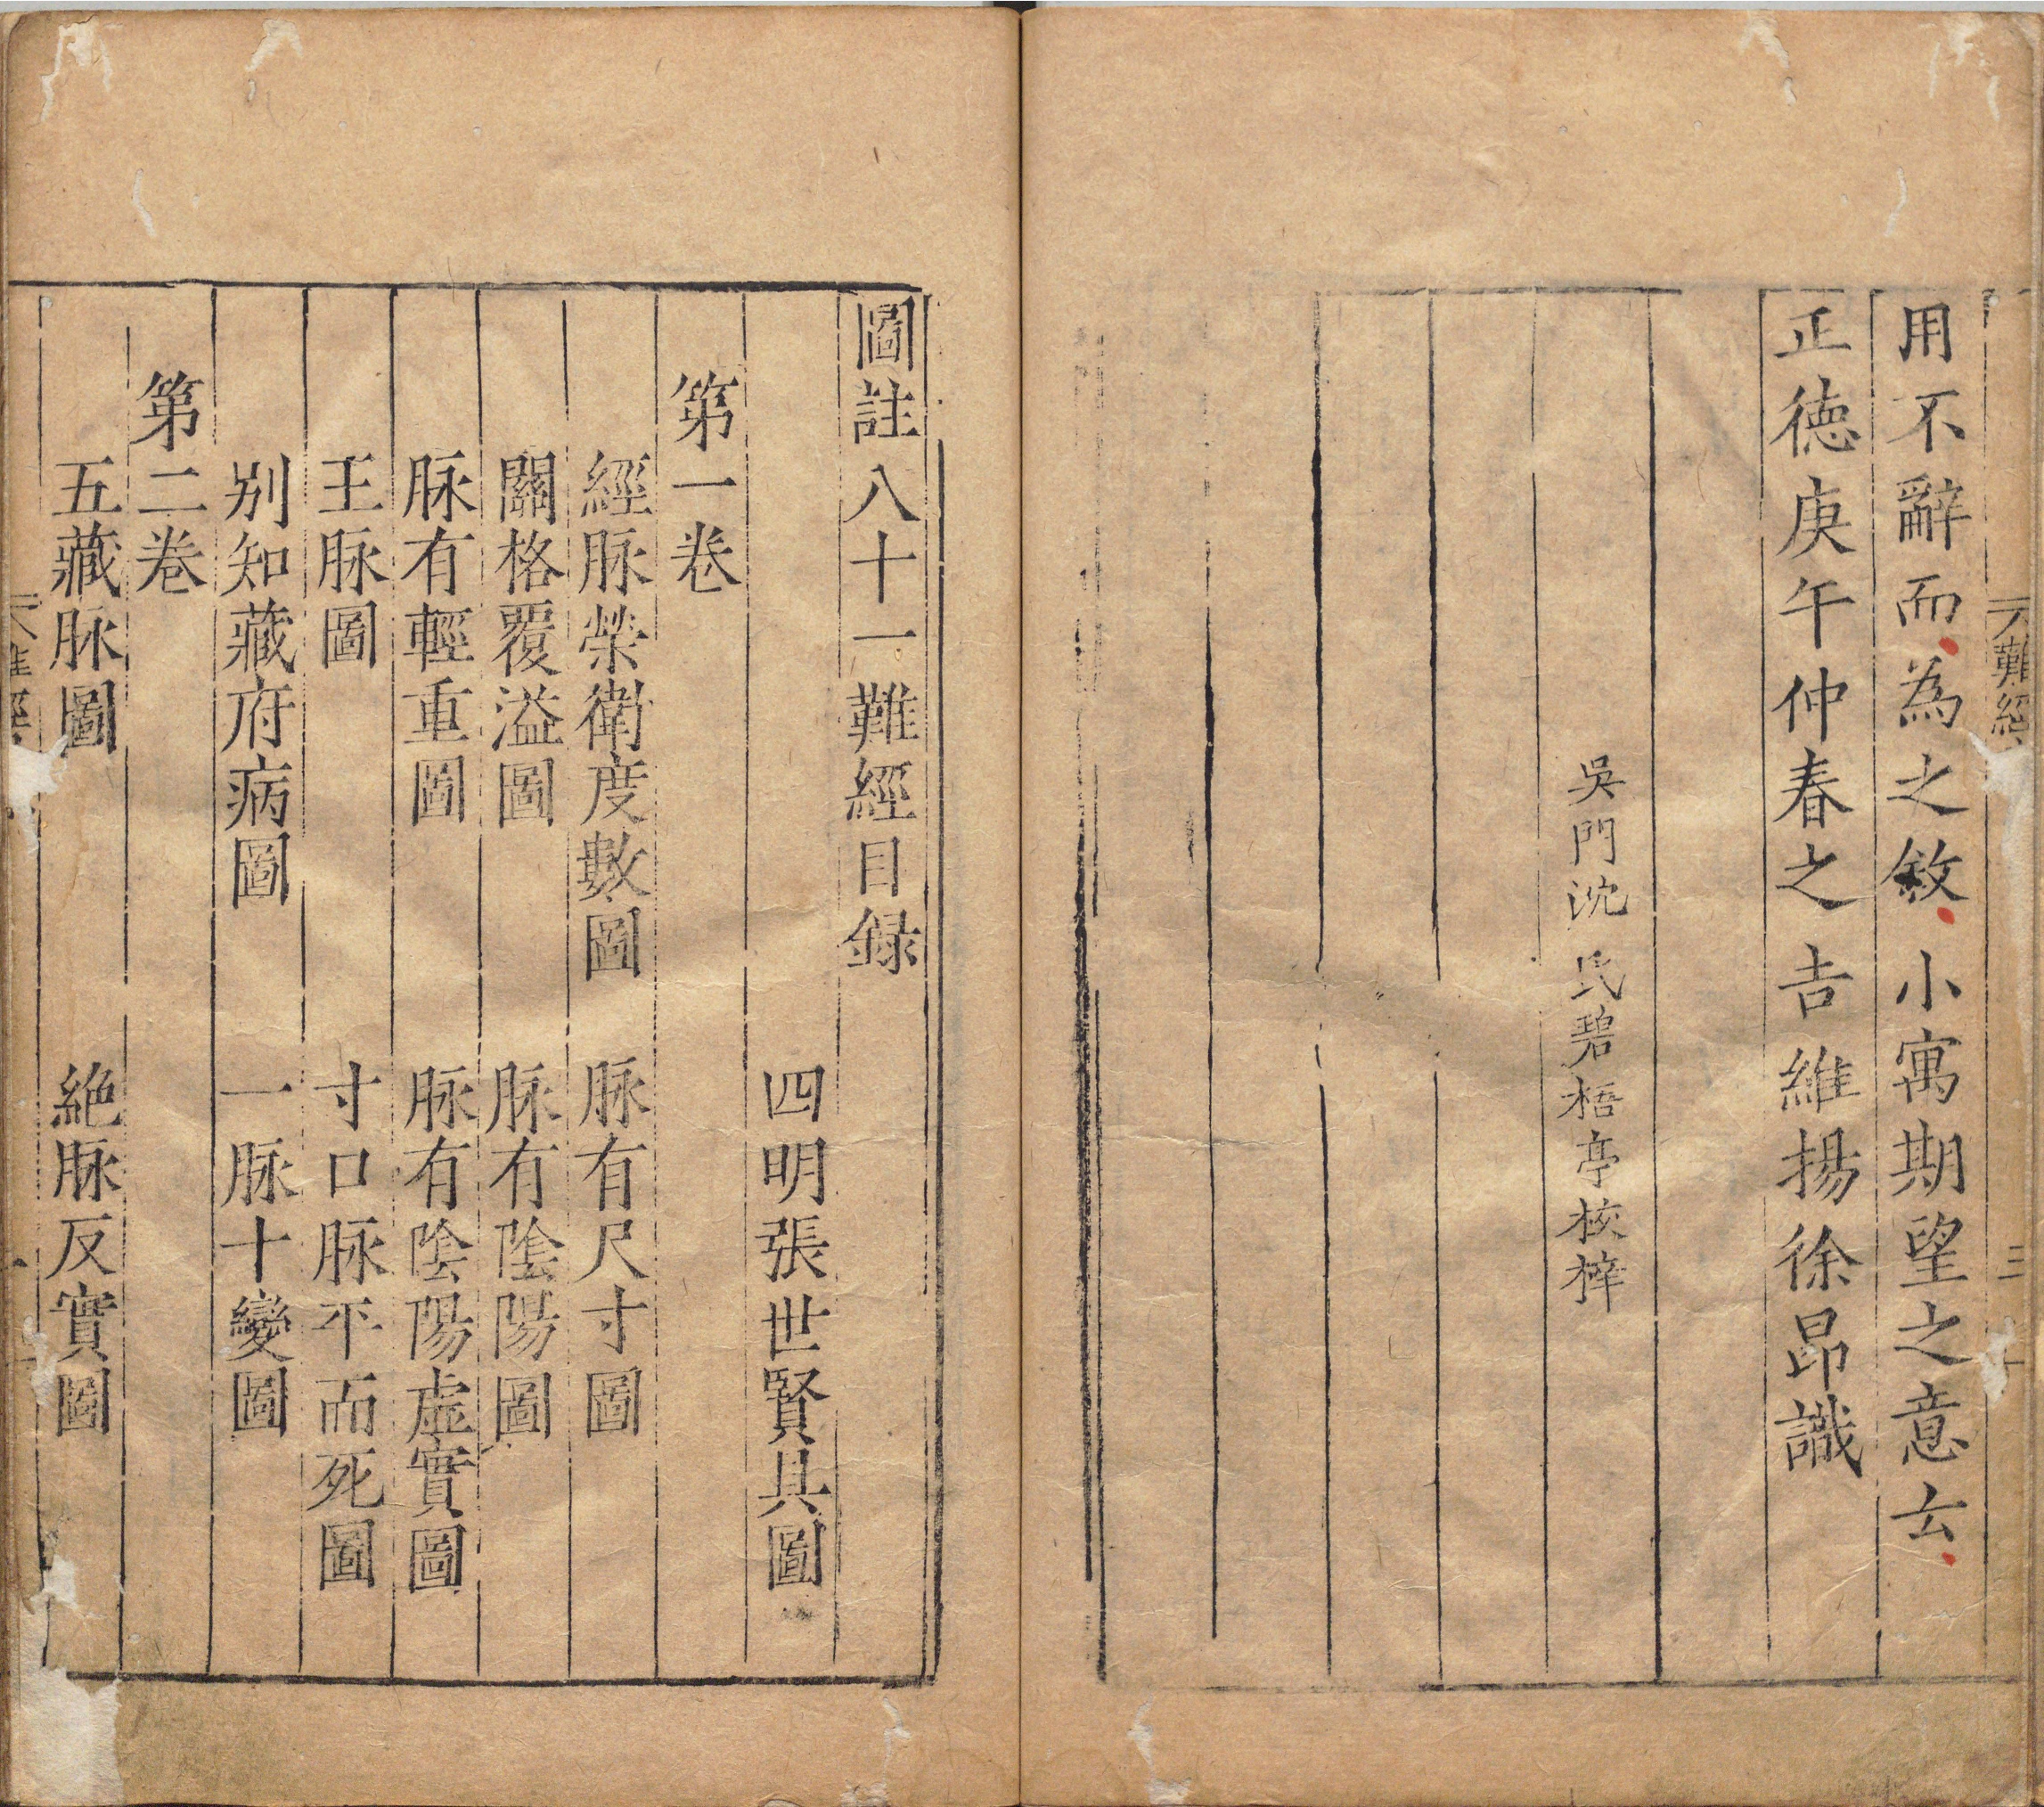 用不辭而為之敘小寓期望之意云
正德庚午仲春之吉維揚徐昂識
吳門沈氏碧梧亭校梓
圖註八十一難經目録
四明張世賢具圖
第一卷
經脉榮衛度數圖　脉有尺寸圖
關格覆溢圖　脉有陰陽圖
脉有輕重圖　脉有陰陽虛實圖
王脉圖　寸口脉平而死圖
别知藏府病圖　一脉十變圖
第二卷
五藏脉圖　絶脉反實圖